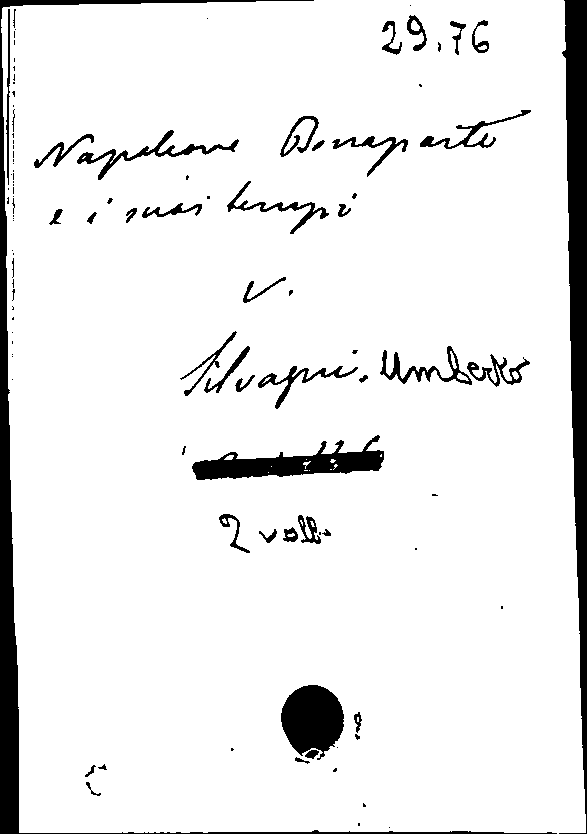 29.76
Napoleone Bonaparte
e i suoi tempi
V.
Silvagni, Umberto
2 voll.